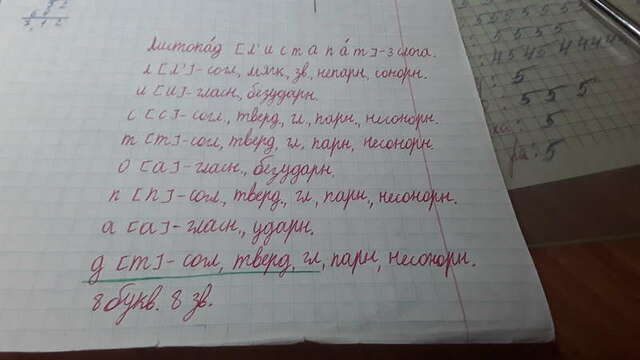 5 2
6 6
3, 1 2
Листопа́д [л'истапа́т]-3 слога.
л [л']-согл, мягк, зв, непарн, сонорн.
и [и]-гласн, безударн.
с [с]-согл, тверд, гл, парн, несонорн.
т [т]-согл, тверд, гл, парн, несонорн.
о [а]-гласн., безударн.
п [п]-согл, тверд., гл, парн., несонорн.
а [а]-гласн., ударн.
д [т]-согл, тверд, гл, парн, несонорн.
8 букв. 8 зв.
5
5 5 5
5
: 5